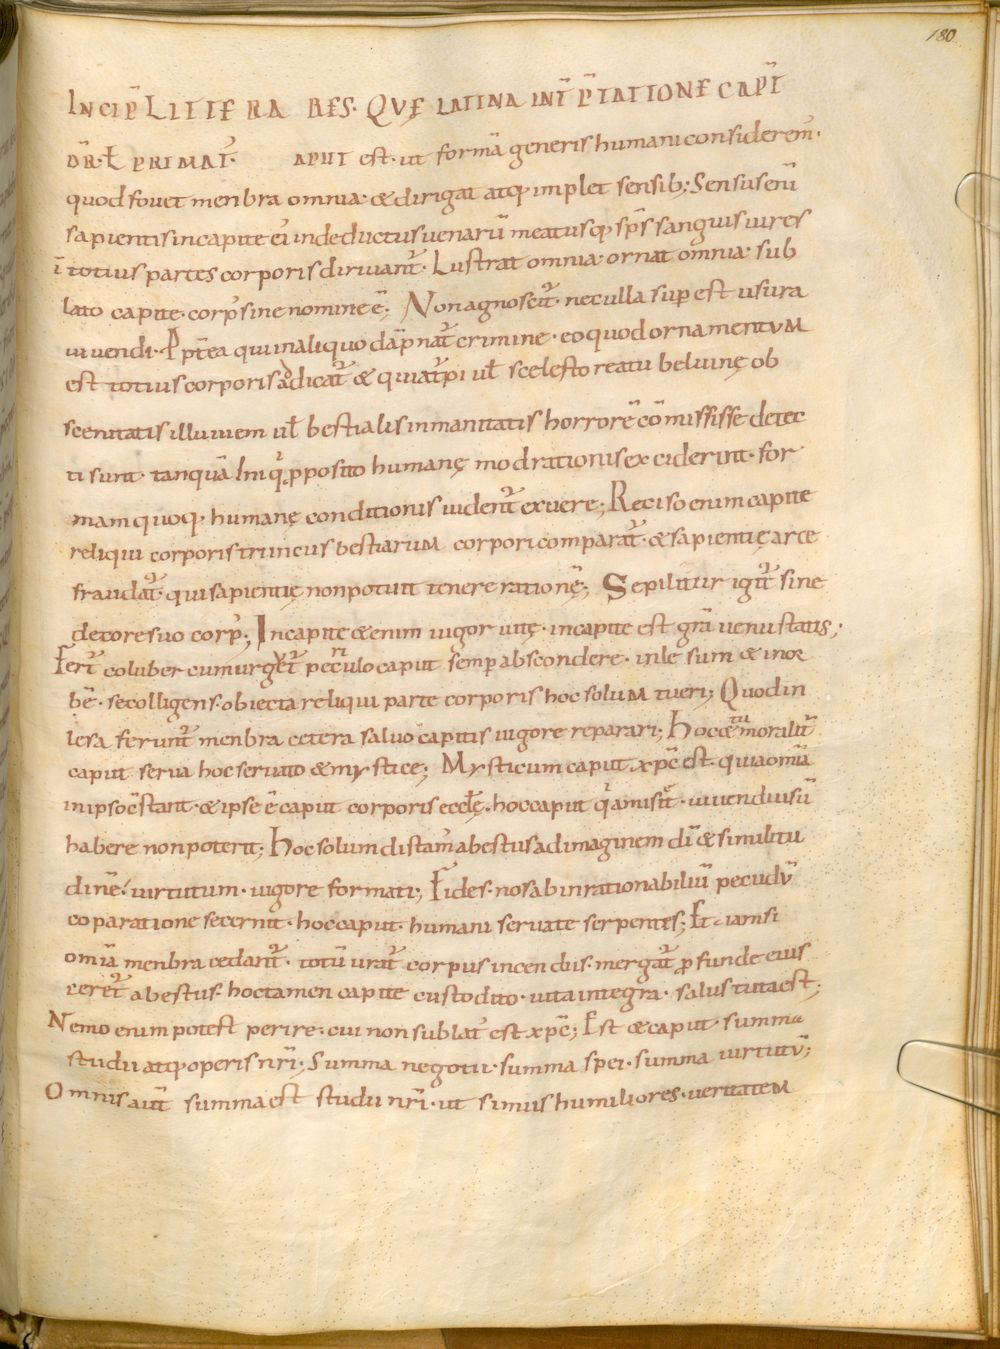 180
INCIP̄ LITTERA RES· QVĘ LATINA INT̄P̄TATIONE CAPĪT
DR̄·Ł PRIMAT᷒· APUT est· ut formā generis humani considerem᷒·
quod fovet menbra omnia· & dirigat atq; implet sensib; Sensus enī
sapientis in capite ei᷒ inde ductus venarū meatusq; sp̄s sanguis vires
ī totius partes corporis dirivant᷒· Lustrat omnia· ornat omnia· sub
lato capite· corp᷒ sine nomine ē; Non agnoscit᷒· nec ulla sup̄ est usura
vivendi· Ppt̄ea qui in aliquo dāpnat᷒ crimine· eo quod ornamentum
est totius corporis adicat᷒ & quia t᷒pi ul̄ scelesto reatu beluinę ob
scenitatis illuviem ul̄ bestialis inmanitatis horrorē cōmississe detec
ti sunt· tanquā hi q᷒ p̱posito humanę modrationis exciderint· for
mam quoq· humanę conditionis vident᷒ exuere; Reciso enim capite
reliqui corporis truncus bestiarum corpori comparat᷒· & sapientię arce
fraudat᷒· qui sapientię non potuit tenere rationē; Sepilitur igit᷒ sine
decore suo corp᷒; In capite &enim vigor vitę· in capite est grā venustatis;·
Fert᷒ coluber cum urget᷒ periculo caput semp̱ abscondere· in le sum & in or
bē· se colligens· obiecta reliqui parte corporis hoc solum tueri; Quod in
lesa ferunt᷒ menbra cetera salvo capitis vigore reparari; Hoc &m̄ moralit᷒
caput serva hoc servato & mystice; Mysticum caput xp̄c est· quia omīa
in ipso c̄stant· & ipse ē caput corporis eccłę· hoc caput q᷒ amisit᷒· vivendi usū
habere non poterit; Hoc solum distam᷒ a bestiis ad imaginem dī & similitu
dinē· virtutum· vigore formati; Fides· nos ab inrationabiliū pecudū
coparatione secernit· hoc caput· humani servate serpentes; Et iam si
omīa menbra cedant᷒· totū urat᷒ corpus incendiis· mergat᷒ p̱funde eius
ceret᷒ a bestiis· hoc tamen capite custodito· vita integra· salus tuta est;
Nemo enim potest perire· cui non sublat᷒ est xp̄c; Est & caput· summa
studii atq; operis nr̄i; Summa negotii· summa spei· summa virtutū;
Omnis aut̄ summa est studii nr̄i· ut simus humiliores· veritatem